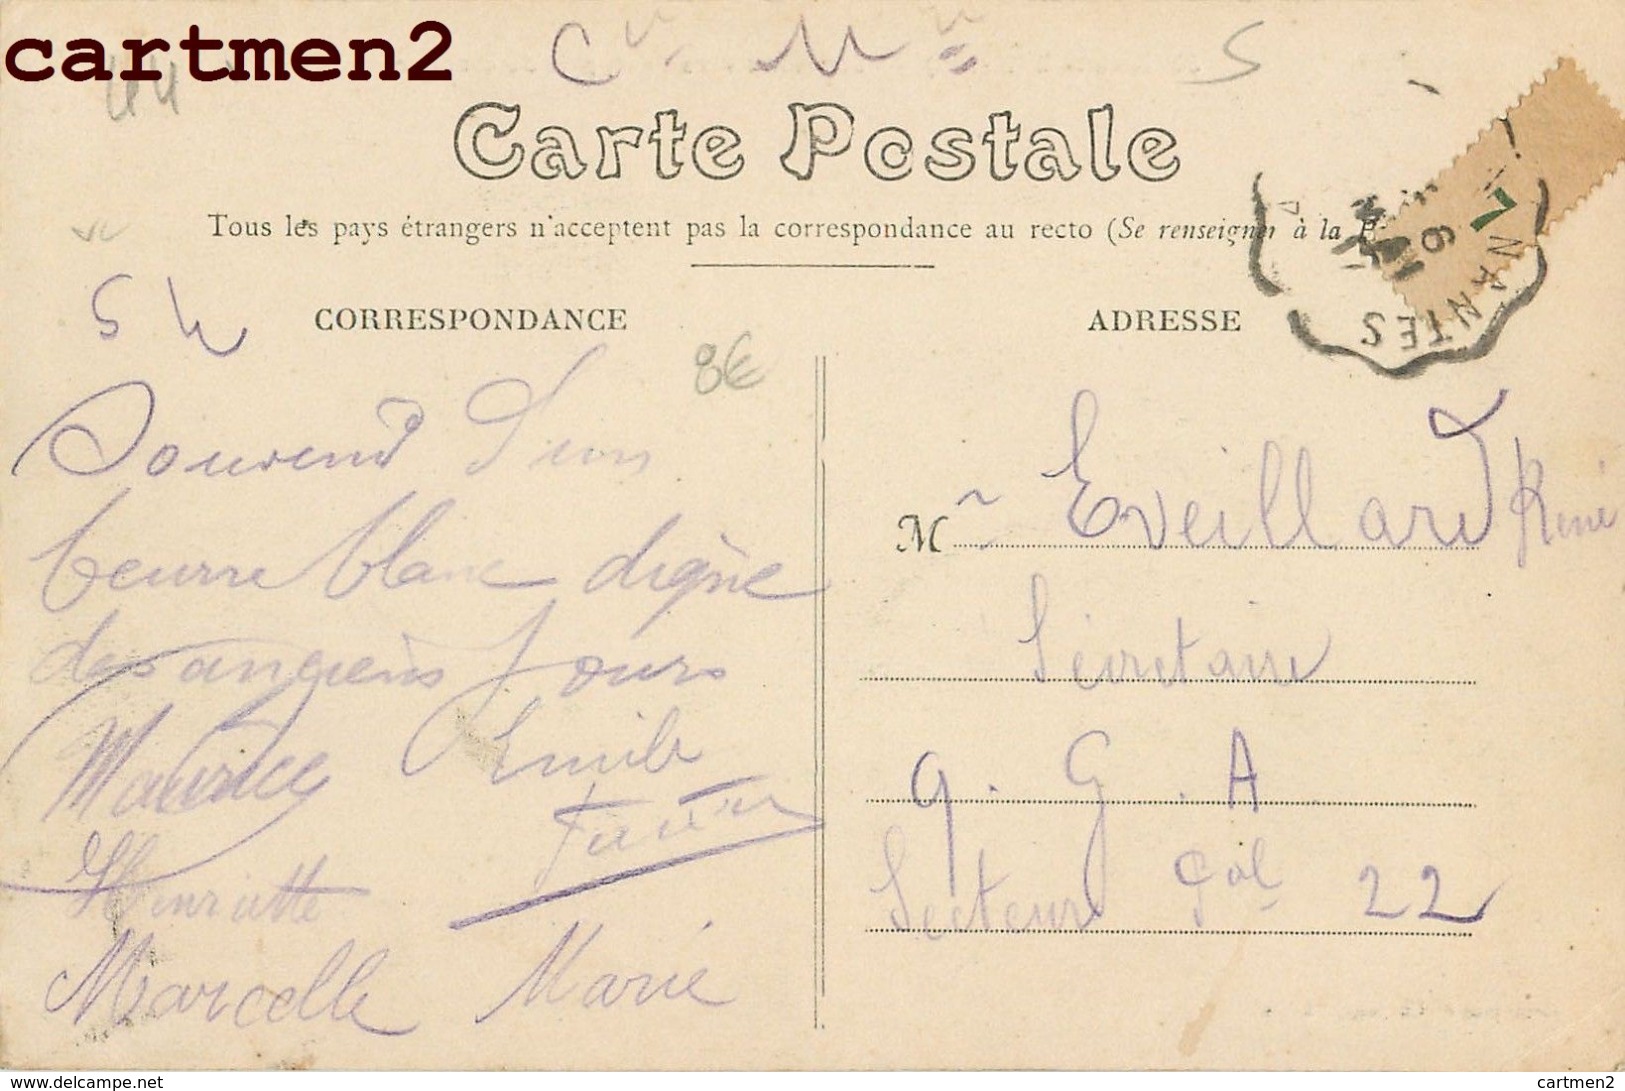 cartmen2
44
Carte Postale
Tous les pays étrangers n'acceptent pas la correspondance au recto (Se renseigner à la P
7
NANTES
CORRESPONDANCE
ADRESSE
8€
Souvenir d'un
beurre blanc digne
des anciens jours
Maurice Emile
Henriette
Marcelle Marie
Mr Eveillard René
Sécretaire
q. G. A
Secteur Pal 22
www.delcampe.net
cartmen2